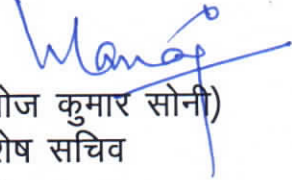 Manoj
ोज कुमार सोनी)
शेष सचिव